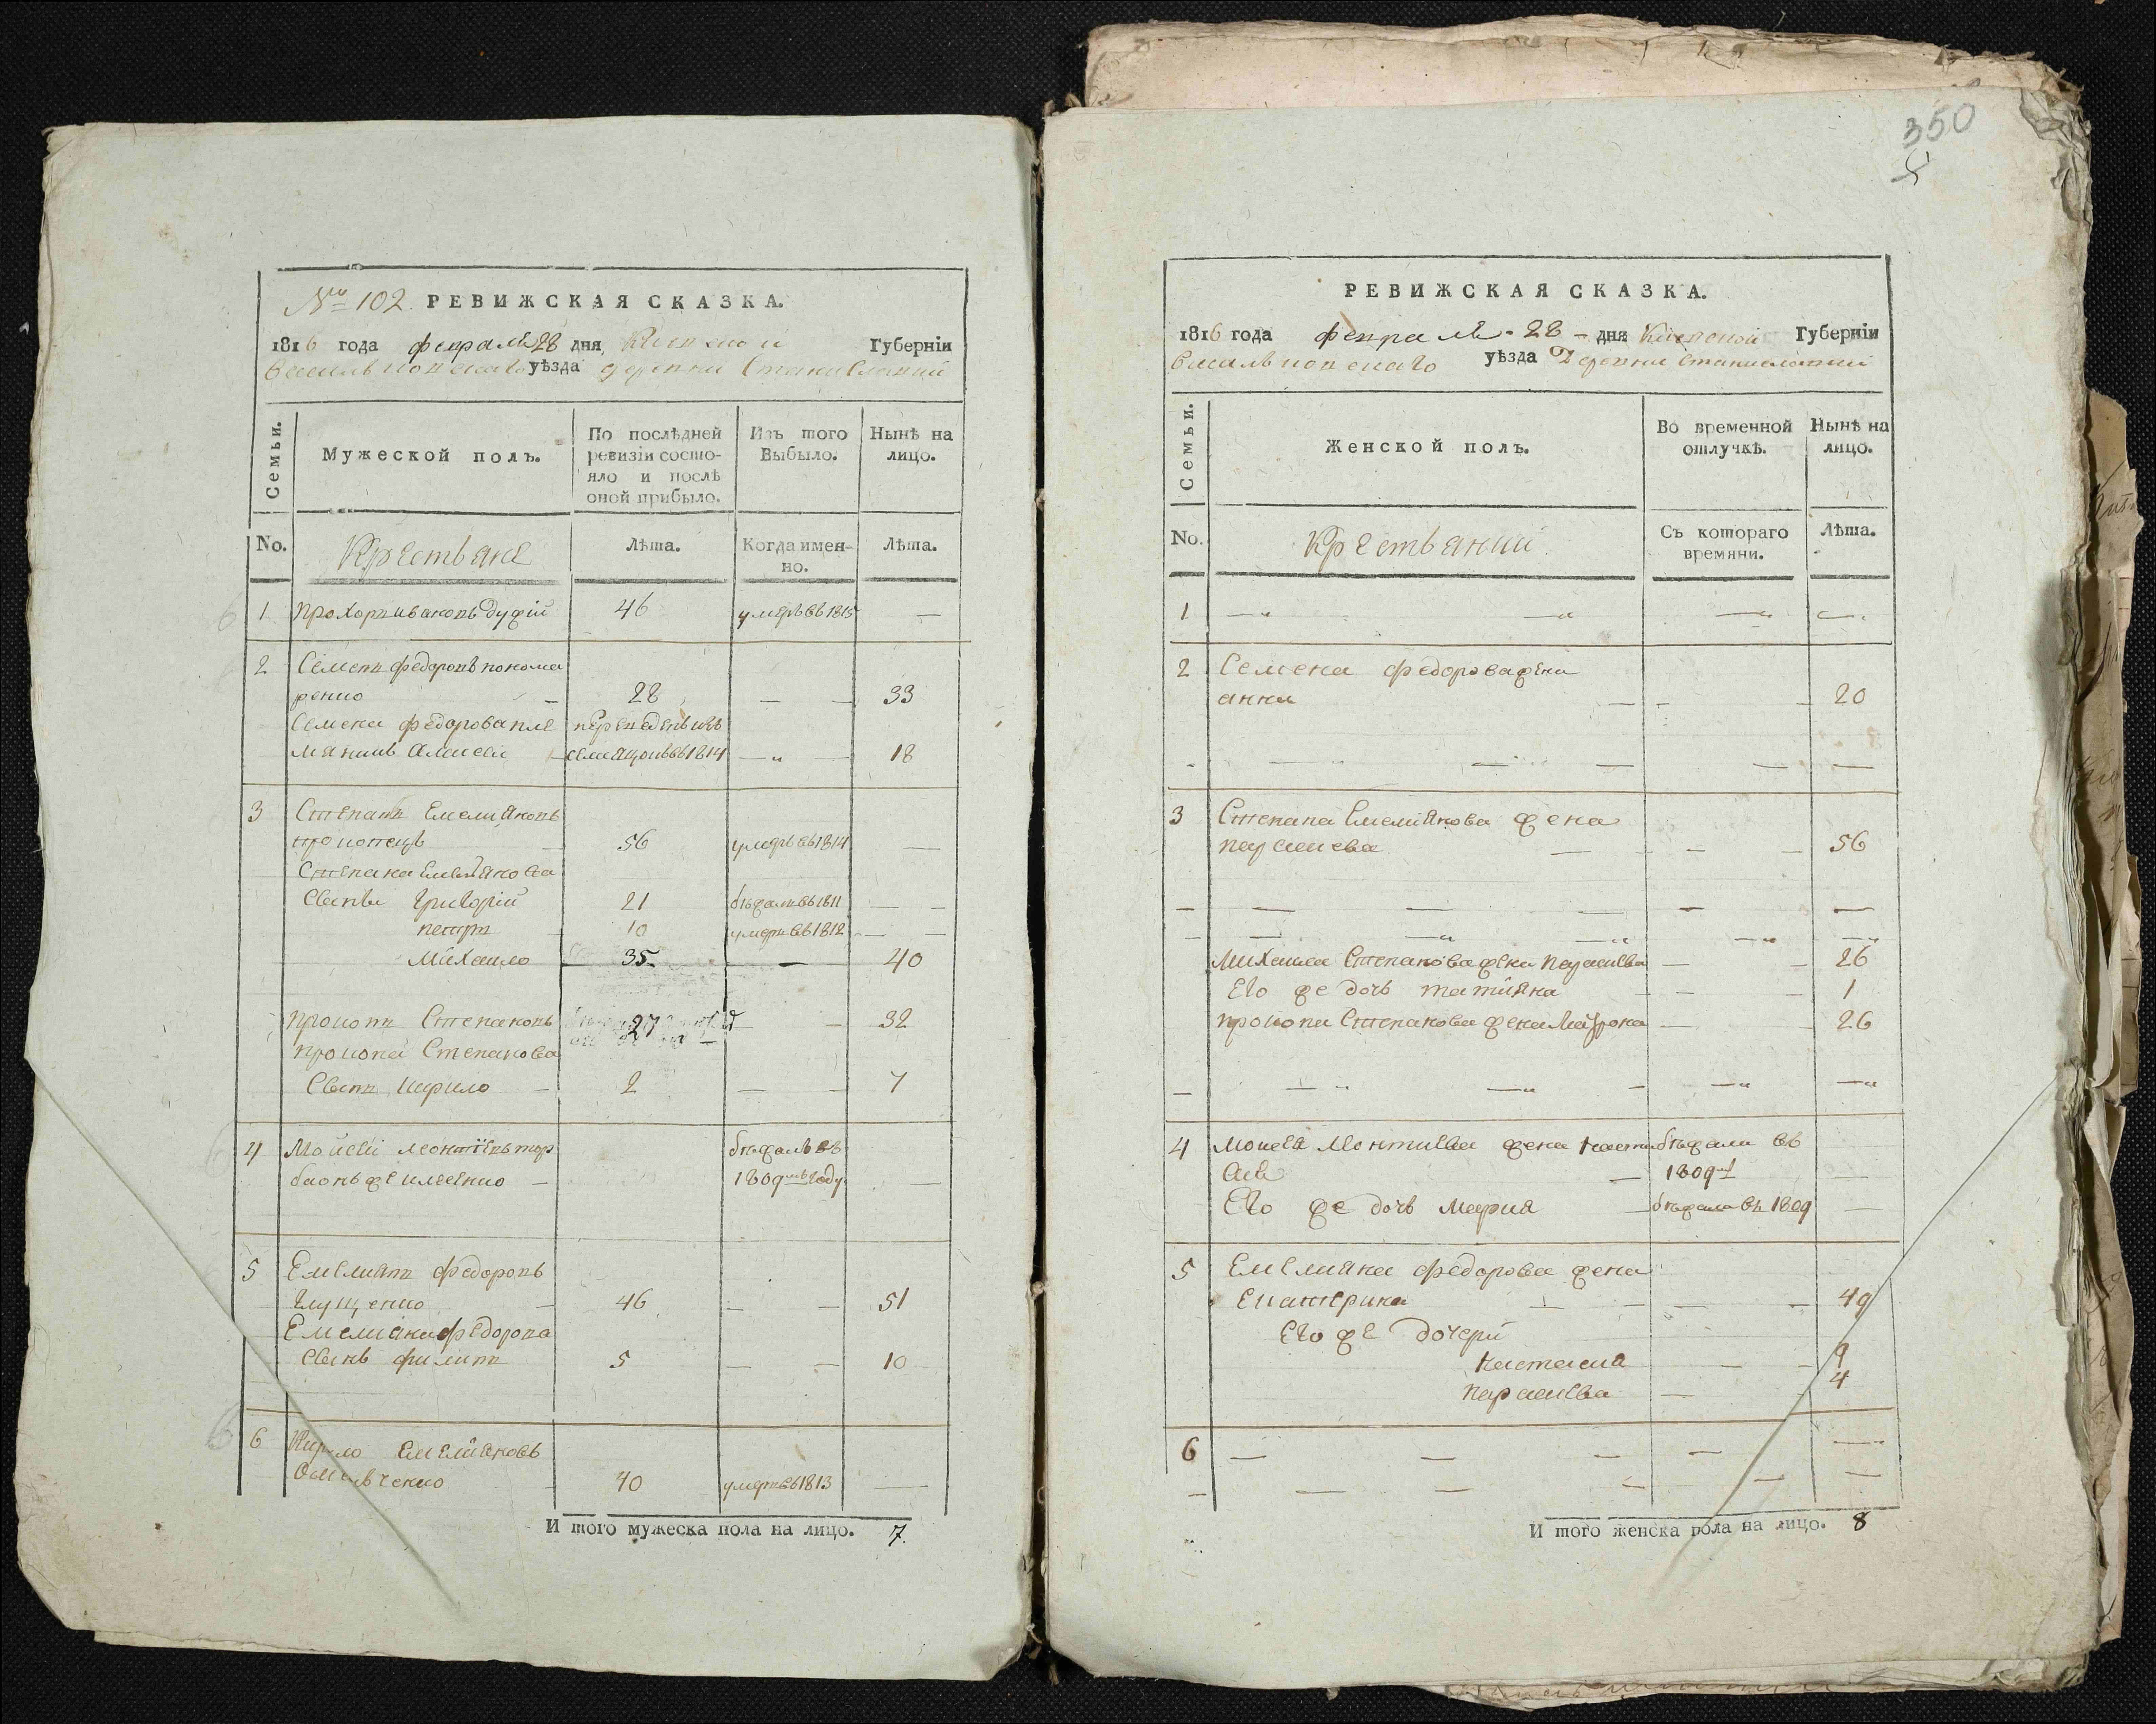 № 102. РЕВИЖСКАЯ СКАЗКА.
1816 года февраля 28 дня Киевской Губерніи
Васильковскаго уѣзда деревни Станиславки
Семьи.
Мужеской полъ.
По послѣдней ревизіи состояло и послѣ оной прибыло.
Изъ того Выбыло.
Нынѣ на лицо.
No.
Крестьяне
Лѣта.
Когда именно.
Лѣта.
1 Прохоръ Ивановъ 46 умеръ въ 1815 —
2 Семенъ Федоровъ Понома
ренко — 28 — — 33
Семена Федорова пле переведенъ изъ
мяникъ Алексей — села въ 1814 — „ — 18
3 Степанъ Емелияновъ
56 умеръ въ 1814 —
Степана Емелиянова
Сыновья Григорій 21 бѣжалъ въ 1811 — —
Петръ 10 умеръ въ 1812 — —
Михайло 35 — 40
Прокопъ Степановъ 27 — — 32
Прокопа Степанова
Сынъ Кирило — 2 — — 7
4 Мойсей Леонтіевъ бѣжалъ въ
— 1809 году —
5 Емелиянъ Федоровъ
Глущенко — 46 — — 51
Емелияна Федорова
Сынъ Филипъ 5 — — 10
6 Кирило Емелияновъ
40 умеръ въ 1813 —
И того мужеска пола на лицо. 7.
350
РЕВИЖСКАЯ СКАЗКА.
1816 года февраля 28 — дня Киевской Губерніи
Васильковскаго уѣзда Деревни Станиславки
Семьи.
Женской полъ.
Во временной отлучкѣ.
Нынѣ на лицо.
No.
Крестьянки
Съ котораго времяни.
Лѣта.
1 — „ — „ — „ — .
2 Семена Федорова жена
анна — — — 20
3 Степана Емелиянова жена
Параскева — — — 56
Михайла Степанова жена Параскева — — 26
Его же дочь татияна — — 1
Прокопа Степанова жена Мавро̀на — — 26
4 Мойсея Леонтиева жена Наста бѣжали въ
сия — 1809 —
Его же дочь Мария — бѣжала въ 1809 —
5 Емелияна Федорова жена
Екатерина — — — 49
Его же дочери
Настасия — — 9
Параскева — 4
6 — — — — —
И того женска пола на лицо. 8